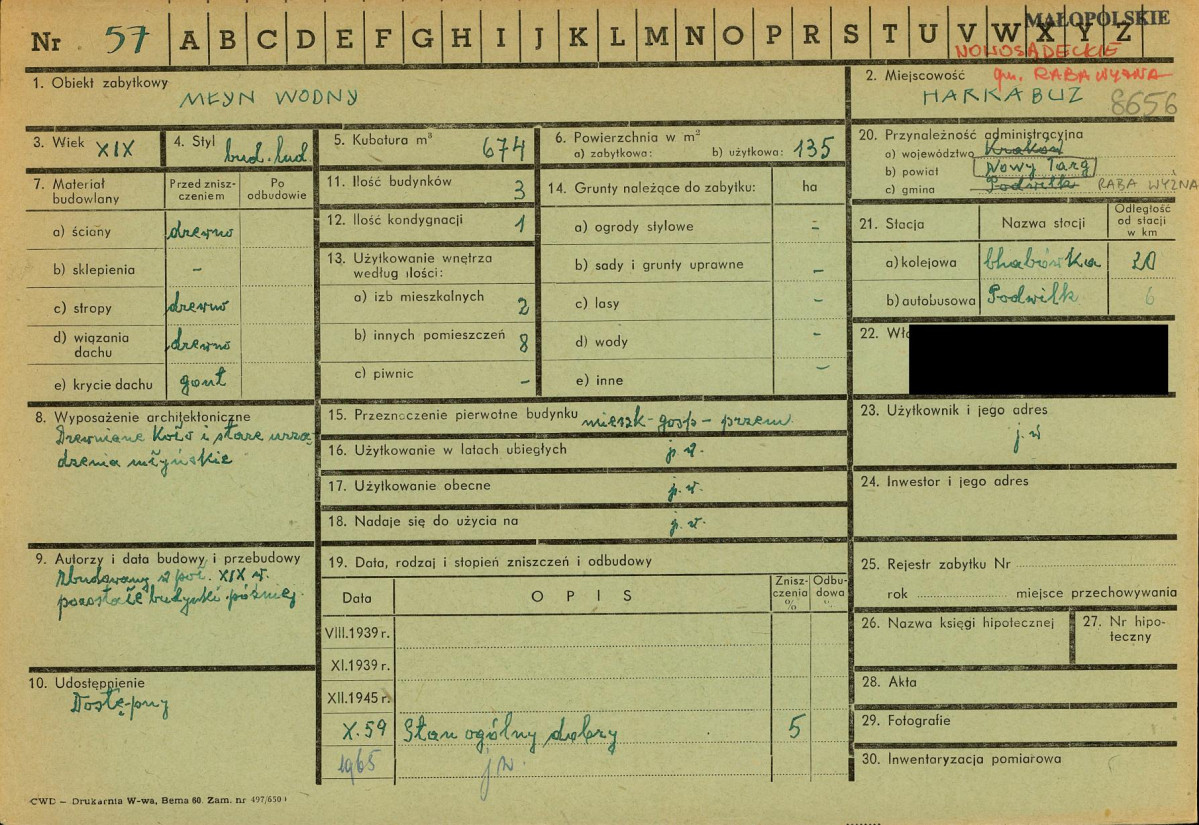 MAŁOPOLSKIE
Nr 57 A B C D E F G H I J K L M N O P R S T U V W X Y Z
NOWOSĄDECKIE
1. Obiekt zabytkowy
MŁYN WODNY
2. Miejscowość gm. RABA WYŻNA
HARKABUZ 8656
3. Wiek XIX
4. Styl bud. lud.
5. Kubatura m³ 674
6. Powierzchnia w m²
a) zabytkowa: b) użytkowa: 135
20. Przynależność administracyjna
a) województwo Kraków
b) powiat Nowy Targ
c) gmina Podwilk RABA WYŻNA
7. Materiał budowlany
Przed zniszczeniem
Po odbudowie
a) ściany drewno
b) sklepienia –
c) stropy drewno
d) wiązania dachu drewno
e) krycie dachu gont
11. Ilość budynków 3
12. Ilość kondygnacji 1
13. Użytkowanie wnętrza
według ilości:
a) izb mieszkalnych 2
b) innych pomieszczeń 8
c) piwnic –
14. Grunty należące do zabytku: ha
a) ogrody stylowe –
b) sady i grunty uprawne –
c) lasy –
d) wody –
e) inne –
21. Stacja Nazwa stacji Odległość od stacji w km
a) kolejowa Chabówka 20
b) autobusowa Podwilk 6
22. Wł
8. Wyposażenie architektoniczne
Drewniane koło i stare urzą-
dzenia młyńskie
15. Przeznaczenie pierwotne budynku mieszk-gosp-przem.
16. Użytkowanie w latach ubiegłych j.w.
17. Użytkowanie obecne j.w.
18. Nadaje się do użycia na j.w.
23. Użytkownik i jego adres
j.w
24. Inwestor i jego adres
9. Autorzy i data budowy i przebudowy
Zbudowany w poł. XIX w.
pozostałe budynki później.
19. Data, rodzaj i stopień zniszczeń i odbudowy
Data OPIS Zniszczenia % Odbudowa %
VIII.1939 r.
XI.1939 r.
XII.1945 r.
X.59 Stan ogólny dobry 5
1965 jw.
25. Rejestr zabytku Nr
rok miejsce przechowywania
26. Nazwa księgi hipotecznej
27. Nr hipoteczny
10. Udostępnienie
Dostępny
28. Akta
29. Fotografie
30. Inwentaryzacja pomiarowa
CWD – Drukarnia W-wa, Bema 60. Zam. nr 497/650